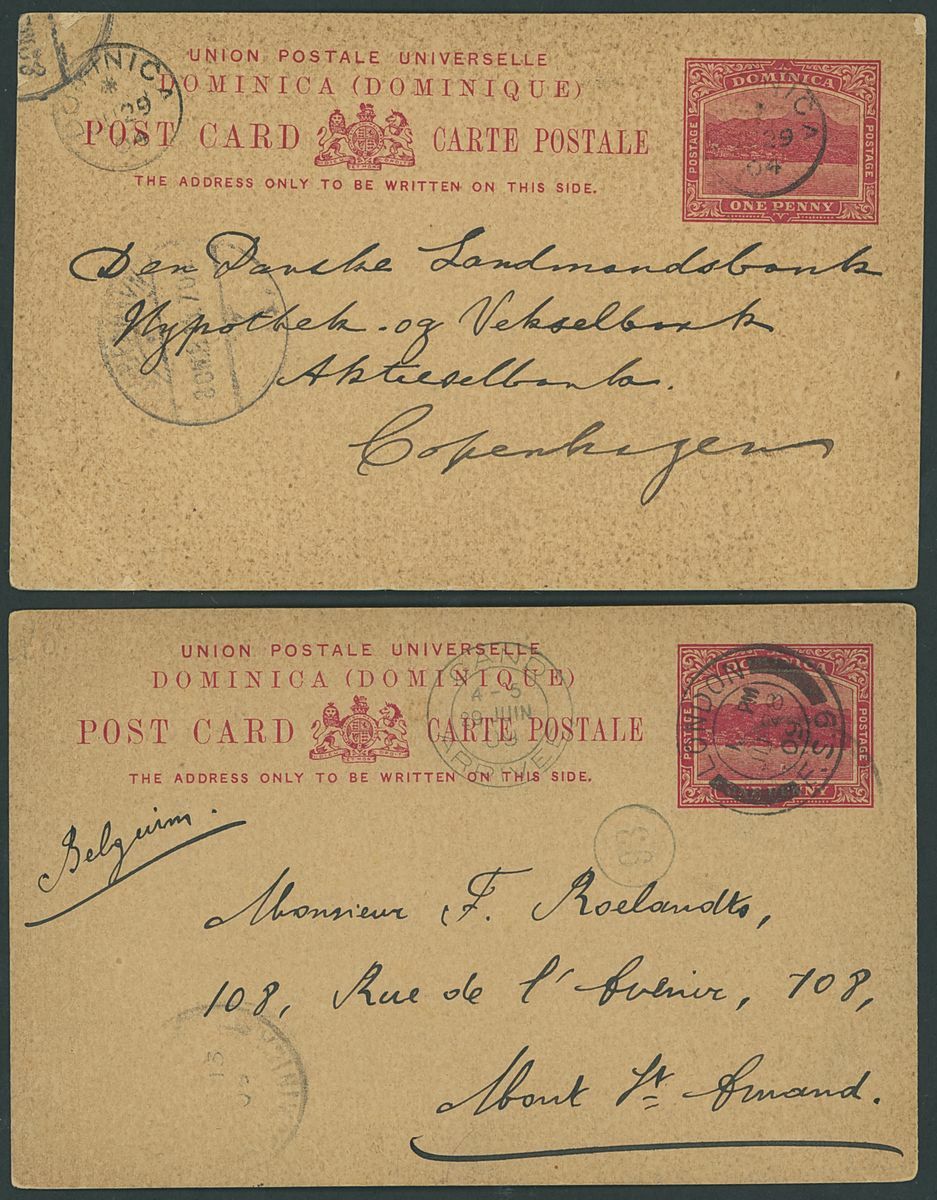 UNION POSTALE UNIVERSELLE
DOMINICA (DOMINIQUE)
POST CARD CARTE POSTALE
THE ADDRESS ONLY TO BE WRITTEN ON THIS SIDE.
DOMINICA
POSTAGE POSTAGE
ONE PENNY
DOMINICA
29
29
04
Den Danske Landmandsbank
Hypothek- og Vekselbank
Aktieselbank.
Copenhagen
UNION POSTALE UNIVERSELLE
DOMINICA (DOMINIQUE)
POST CARD CARTE POSTALE
THE ADDRESS ONLY TO BE WRITTEN ON THIS SIDE.
POSTAGE POSTAGE
LONDON
PM
GAND
4-5
JUIN
ARRIVEE
93
Belguim.
Monsieur F. Roelandts,
108, Rue de l'Avenir, 108,
Mont St Amand.
13